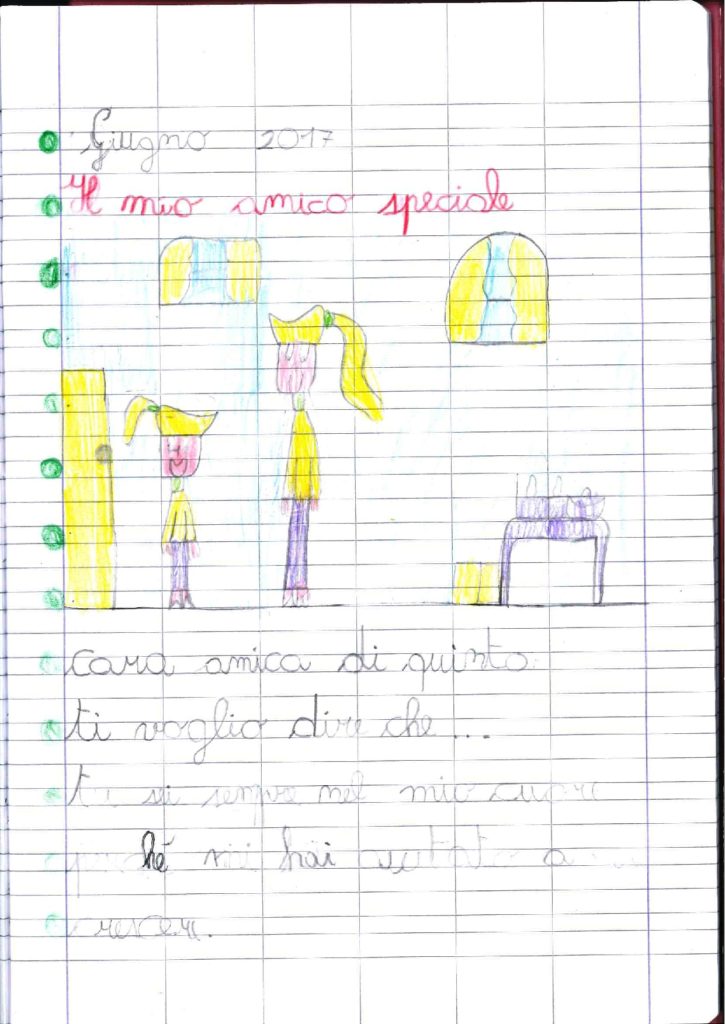 Giugno 2017
Il mio amico speciale
cara amica di quinta
ti voglio dire che...
tu sei sempre nel mio cuore
perché mi hai aiutato a
crescere.